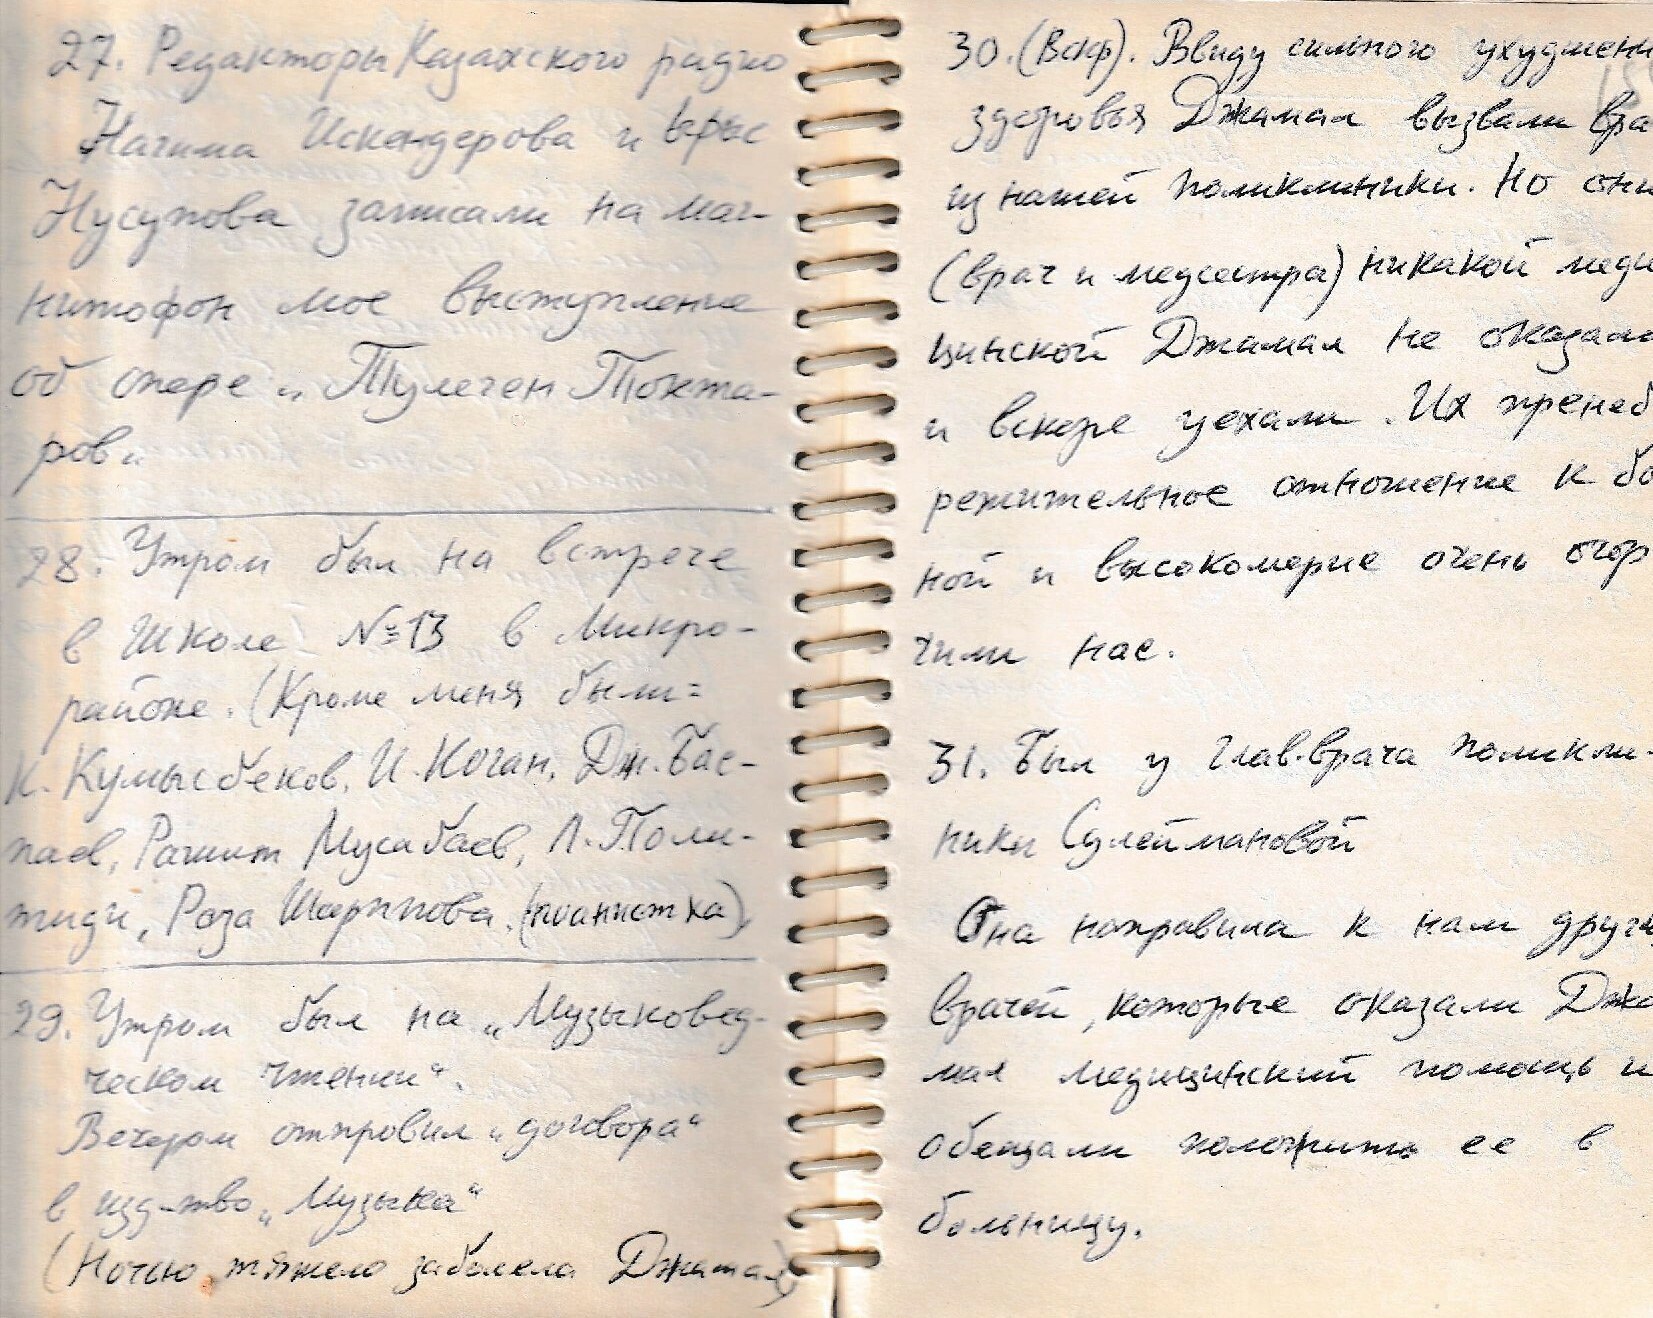 27. Редакторы Казахского радио
Нагима Искендерова и Ырыс
Нусупова записали на маг-
нитофон мое выступление
об опере „Тулеген Токта-
ров„
28. Утром был на встрече
в Школе №13 в Микро-
районе. (Кроме меня были:
К. Кумысбеков, И. Коган, Дж. Бас-
паев, Рашит Мусабаев, Л. Поли-
тиди, Роза Шарипова, (пианистка),
29. Утром был на „Музыковед-
ческом чтении“.
Вечером отправил „договора“
в изд-тво „Музыка“
(Ночью тяжело заболела Джамал)
30. (Вскр). Ввиду сильного ухудшени
здоровья Джамал вызвали вра
из нашей поликлиники. Но они
(врач и медсестра) никакой меди
цинской Джамал не оказали
и вскоре уехали. Их пренеб
режительное отношение к бо
ной и высокомерие очень огор
чили нас.
31. Был у Глав.врача поликли-
ники Сулеймановой
Она направила к нам других
врачей, которые оказали Джа
мал медицинский помощь и
обещали положить ее в
больницу.